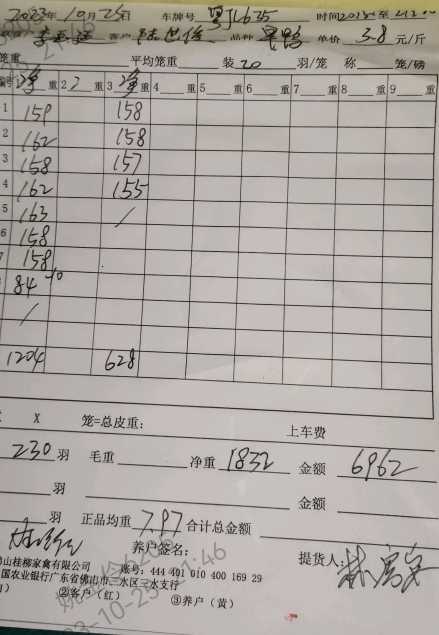 2023年 10月25日 车牌号 粤JL635 时间 至
客户 品种 单价 3.8 元/斤
笼重 平均笼重 装 20 羽/笼 称 笼/磅
编号 1 净 重 2 重 3 净 重 4 重 5 重 6 重 7 重 8 重 9 重
1 159 158
2 162 158
3 158 157
4 162 155
5 163 /
6 158
7 158
84 10
/
1204 628
X 笼=总皮重: 上车费
230 羽 毛重 净重 1832 金额 6962
羽 金额
羽 正品均重 7.97 合计总金额
养户签名: 提货人:
佛山桂柳家禽有限公司 账号: 444 401 010 400 169 29
中国农业银行广东省佛山市三水区三水支行
②客户(红) ③养户(黄)